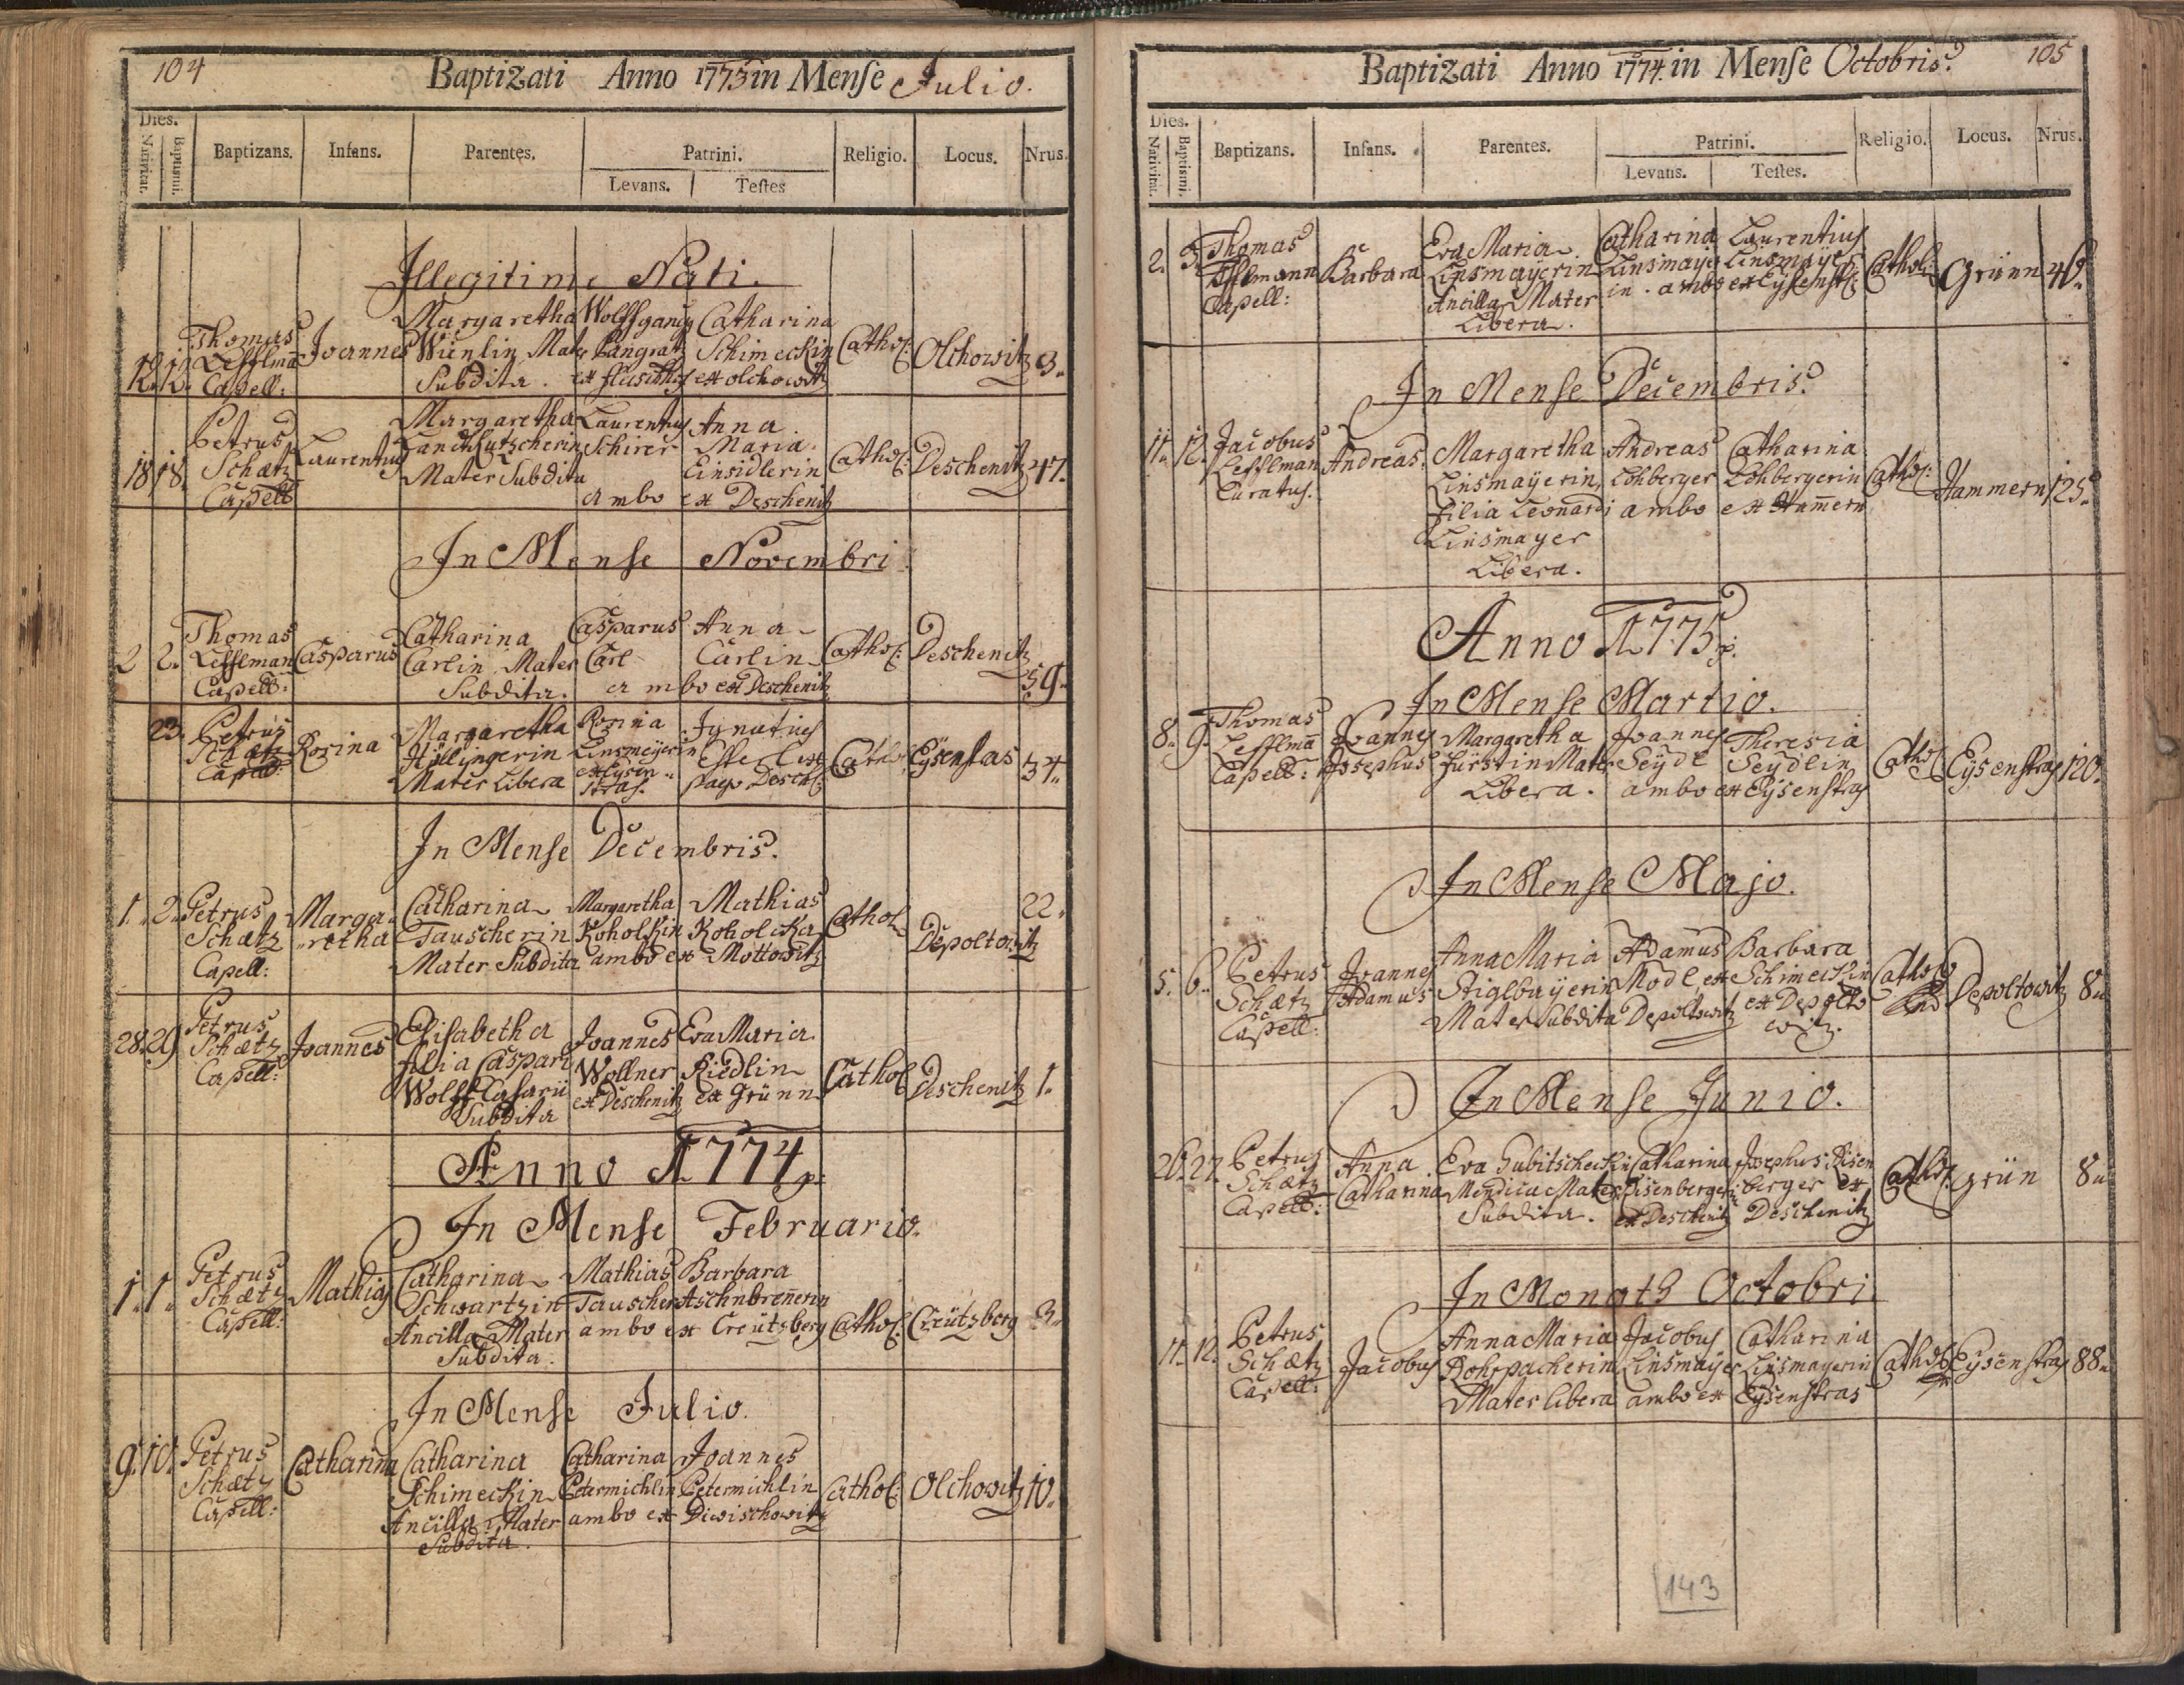 104
Baptizati Anno 1773 in Mense Julio.
Dies.
Nativitat. Baptismi. Baptizans. Infans. Parentes. Patrini. Religio. Locus. Nrus.
Levans. Testes
Illegitime Nati.
Margaretha Wolffgang Catharina
Thomas Joannes Wienlin Mater Pangratz Schimeckin Cathol: Olchowitz 3.
12. 12. Lefflman Subdita. ex ex olchowitz
Capell:
Petrus Margaretha Laurentius Anna
Schætz Laurentius Schirer Maria
18 18. Capell Mater Subdita Einsidlerin Cathol: Deschenitz 47.
ambo ex Deschenitz
In Mense Novembri
Thomas Catharina Casparus Anna
2 2. Lefflman Casparus Carlin Mater Carl Carlin Cathol: Deschenitz
Capell: Subdita. ambo ex Deschenitz 59.
23. Petrus Margaretha Rosina Ignatius
Schætz Rosina Höllingerin Linsmeyerin Cathol Eysenstas
Capell: Mater Libera ex Eysenstras. pago Desch: 34.
In Mense Decembris.
1. 2. Petrus Marga- Catharina Margaretha Mathias 22.
Schætz retha Tauscherin Koholkin Koholcka Cathol Depoltowitz
Capell: Mater Subdita ambo ex Mottowitz
28. 29 Petrus Elisabetha Joannes Eva Maria
Schætz Joannes filia Caspari Wollner Riedlin Cathol Deschenitz 1.
Capell: Wolff Casarii ex Deschenitz ex Grünn
Subdita
Anno 1774
In Mense Februario.
1. 1. Petrus Mathias Catharina Mathias Barbara
Schætz Schwartzin Tauscher Aschnbrenerin
Capell: Ancilla Mater ambo ex Creutzberg Cathol: Creützberg 3.
Subdita.
In Mense Julio.
9. 10. Petrus Catharina Catharina Catharina Joannes
Schætz Schimeckin Petermichlin Petermichlin Cathol: Olchowitz 10.
Capell: Ancilla Mater ambo ex Diwischowitz
Subdita.
Baptizati Anno 1774 in Mense Octobris. 105
Dies.
Nativitat. Baptismi. Baptizans. Infans. Parentes. Patrini. Religio. Locus. Nrus.
Levans. Testes.
2. 3. Thomas Eva Maria Catharina Laurentius
Lefflmann Barbara Linsmayerin Linsmayer Linsmayer Cathol: Grünn 46.
Capell: Ancilla Mater in. ambo ex Eysenst:
Libera.
In Mense Decembris.
11. 12. Jacobus Andreas. Margaretha Andreas Catharina
Lefflman Linsmayerin, Lohberger Lohbergerin Cathol: Hammern 125.
Curatus. filia Leonardi ambo ex Hamern
Linsmayer
Libera.
Anno 1775
In Mense Martio.
8. 9. Thomas Joannes Margaretha Joannes Theresia
Lefflman Josephus Fürstin Mater Seydl Seydlin Cathol Eysenstras 120.
Capell: Libera. ambo ex Eysenstras
In Mense Majo.
Anna Maria Adamus Barbara
5. 6. Petrus Joannes Stiglbayerin Modl ex Schimeckin Cathol Depoltowitz 8.
Schætz Adamus Mater Subdita Depoltowitz ex Depolto
Capell: witz.
In Mense Junio.
26. 27. Petrus Anna Eva Subitscheckin Catharina Josephus Eisen
Schætz Catharina Mendica Mater Eisenbergerin berger ex Cathol: Grün 8.
Capell: Subdita. ex Deschenitz Deschenitz
In Monath Octobri
11. 12. Petrus Anna Maria Jacobus Catharina
Schætz Jacobus Rohrpacherin Linsmayer Linsmayerin Cathol Eysenstras 88.
Capell: Mater libera ambo ex Eysenstras
143